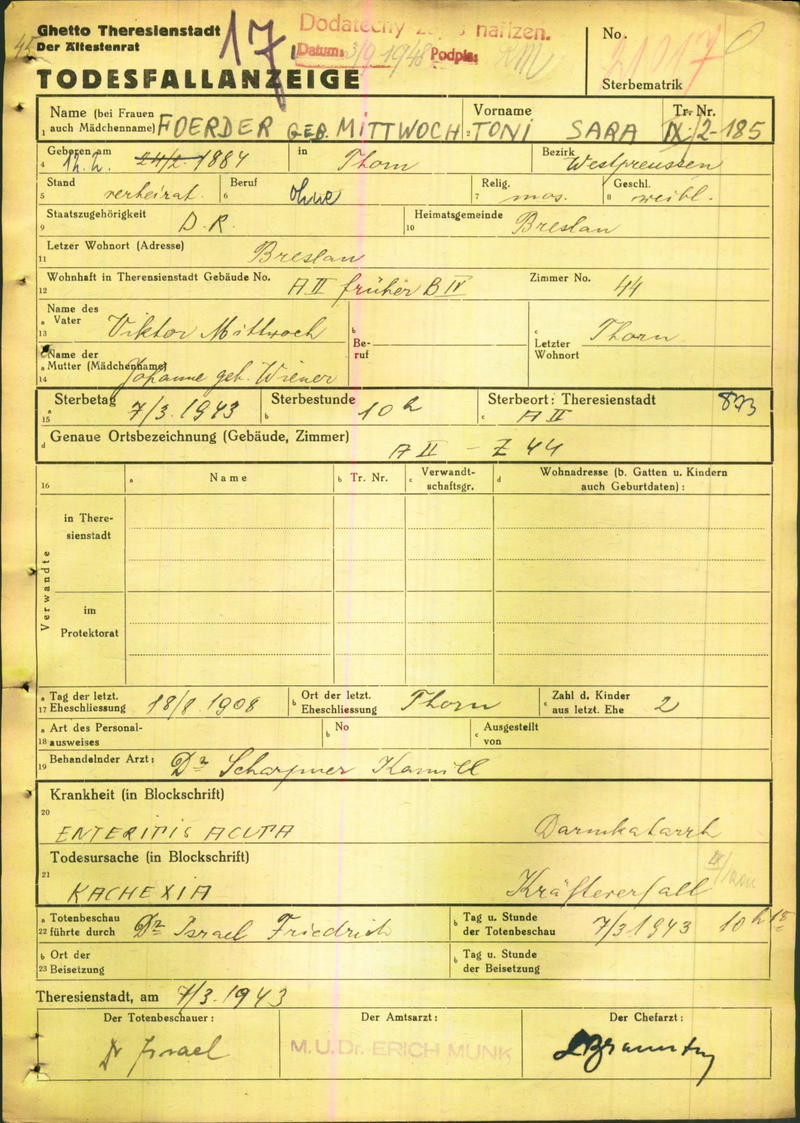 Ghetto Theresienstadt
Der Ältestenrat
17
Dodatečný nařízen.
Datum: 3/9 1948 Podpis:
No. 21017
TODESFALLANZEIGE
Sterbematrik
Name (bei Frauen auch Mädchenname) FOERDER GEB. MITTWOCH
1
Vorname
2 TONI SARA
Tr. Nr.
IX/2-185
4 Geboren am 12.2. 24/2. 1884 in Thorn Bezirk Westpreussen
5 Stand verheirat. 6 Beruf ohne 7 Relig. mos. 8 Geschl. weibl.
9 Staatszugehörigkeit D.R. 10 Heimatsgemeinde Breslau
11 Letzer Wohnort (Adresse) Breslau
12 Wohnhaft in Theresienstadt Gebäude No. A II früher B IV Zimmer No. 44
13 a Name des Vater Viktor Mittwoch b Beruf c Letzter Wohnort Thorn
14 a Name der Mutter (Mädchenname) Johanne geb. Wiener
15 a Sterbetag 7/3. 1943 b Sterbestunde 10 h c Sterbeort: Theresienstadt A II 873
d Genaue Ortsbezeichnung (Gebäude, Zimmer) A II - Z 44
16 a Name b Tr. Nr. c Verwandtschaftsgr. d Wohnadresse (b. Gatten u. Kindern auch Geburtdaten):
Verwandte
in Theresienstadt
im Protektorat
17 a Tag der letzt. Eheschliessung 18/8. 1908 b Ort der letzt. Eheschliessung Thorn c Zahl d. Kinder aus letzt. Ehe 2
18 a Art des Personalausweises b No c Ausgestellt von
19 Behandelnder Arzt: Dr Kamill
Krankheit (in Blockschrift)
20 ENTERITIS ACUTA Darmkatarrh
Todesursache (in Blockschrift)
21 KACHEXIA Kräfteverfall
22 a Totenbeschau führte durch Dr Israel Friedrich b Tag u. Stunde der Totenbeschau 7/3 1943 10 h 15
23 b Ort der Beisetzung b Tag u. Stunde der Beisetzung
Theresienstadt, am 7/3. 1943
Der Totenbeschauer: Der Amtsarzt: Der Chefarzt:
Dr Israel M.U.Dr. ERICH MUNK